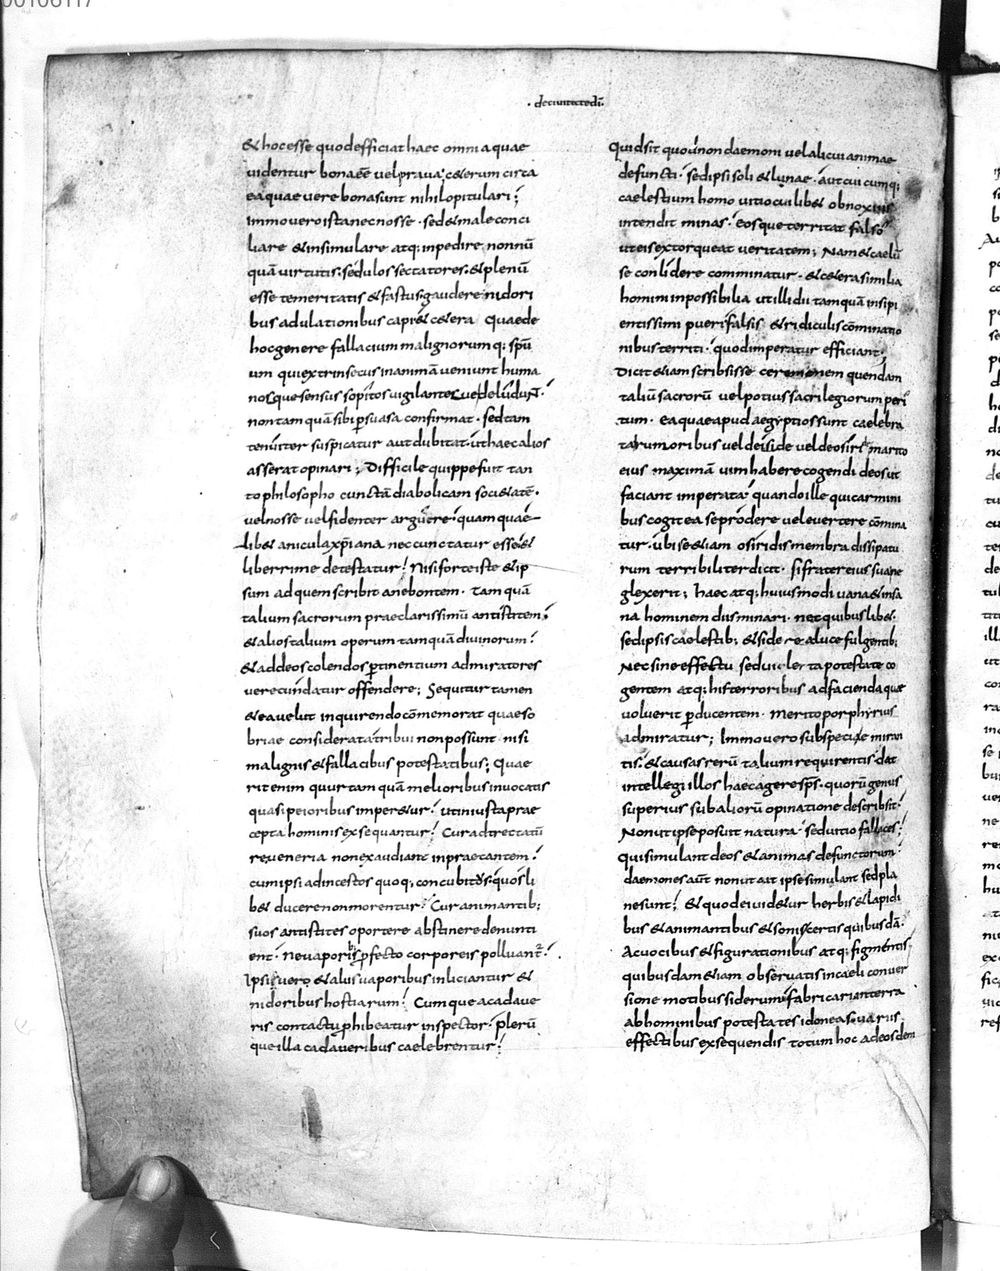 00106117
· deciuitatedi ·
& hoc esse quod efficiat haec omnia quae
uidentur bona ee uel praua; c&erum circa
ea quae uere bona sunt nihil opitulari;
Immo uero ista nec nosse · sed & male conci
liare & insimulare atq; inpedire nonnū
quā uirtutis sedulos sectatores · & plenū
esse temeritatis & fastus gaudere nidori
bus adulationibus capi & c&era Quae de
hoc genere fallacium malignorumq; spū
um qui extrinsecus in animā ueniunt huma
nosque sensus sopitos uigilantesue deludunt ·
non tam quā sibi psuasa confirmat · sed tam
tenuiter suspicatur aut dubitat ut haec alios
asserat opinari; Difficile quippe fuit tan
to philosopho cunctā diabolicam soci&atē ·
uel nosse uel fidenter arguere quam quae
lib& anicula xp̄iana nec cunctatur esse &
liberrime detestatur! Nisi forte iste & ip
sum ad quem scribit anebontem · tam quā
talium sacrorum praeclarissimū antistitem ·
& alios talium operum tamquā diuinorum
& ad deos colendos ptinentium admiratores
uerecundatur offendere; Sequitur tamen
& ea uelut inquirendo cōmemorat quae so
briae considerata tribui non possunt nisi
malignis & fallacibus potestatibus; Quae
rit enim quur tam quā melioribus inuocatis
quasi peioribus imper&ur · ut iniusta prae
cepta hominis exsequantur? Cur adtrectatū
re ueneria non exaudiant inpraecantem?
cum ipsi ad incestos quoq; concubitos quosli
b& ducere non morentur? Cur animantib;
suos antistites oportere abstinere denunti
ent · ne uaporib; pfecto corporeis polluant̄?
Ipsi uero & aliis uaporibus inliciantur &
nidoribus hostiarum? Cumque a cadaue
ris contactu phibeatur inspector · plerū
que illa cadaueribus caelebrentur?
Quid sit quod non daemoni uel alicui animae
defuncti · sed ipsi soli & lunae · aut cuicumq;
caelestium homo uitio cuilib& obnoxius
intendit minas · eosque territat falso
ut eis extorqueat ueritatem; Nam & caelū
se conlidere comminatur · & c&era similia
homini inpossibilia ut illi dii tamquā insipi
entissimi pueri falsis & ridiculis cōminatio
nibus territi · quod imperatur efficiant;
Dicit etiam scribsisse ceremonem quendam
taliū sacrorū uel potius sacrilegiorum peri
tum · ea quae apud aegyptios sunt caelebra
ta rumoribus uel de iside uel de osiri marito
eius maximā uim habere cogendi deos ut
faciant imperata quando ille qui carmini
bus cogit ea se prodere uel euertere cōmina
tur · ubi se &iam osiridis membra dissipatu
rum terribiliter dicit · si fratre eius suae
glexerit; haec atq; huiusmodi uana & insa
na hominem diis minari · nec quibuslib& ·
sed ipsis caelestib; & siderea luce fulgentib;
Nec sine effectu sed uiolenta potestate co
gentem atq; his terroribus ad facienda quae
uoluerit pducentem · merito porphyrius
admiratur; Immo uero sub specie miran
tis & causas rerū talium requirentis dat
intellegi illos haec agere sp̄s · quorū genus
superius sub aliorū opinatione describsit
Non ut ipse posuit natura · sed uitio fallaces!
qui simulant deos & animas defunctorum ·
daemones aūt non ut ait ipse simulant sed pla
ne sunt! & quod ei uid&ur herbis & lapidi
bus & animantibus & sonis certis quibusdā ·
Ac uocibus & figurationibus atq; figmentis
quibusdam &iam obseruatis in caeli conuer
sione motibus siderum fabricari in terra
ab hominibus potestates idoneas uariis
effectibus exsequendis totum hoc ad eosdem